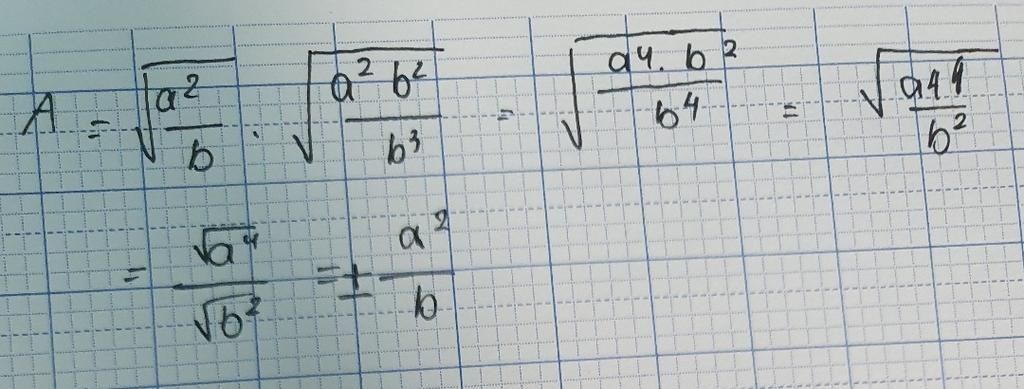 A = √(a²/b) · √(a² b²/b³) = √(a⁴· b²/b⁴) = √(a⁴/b²)
= √a⁴/√b² = ± a²/b